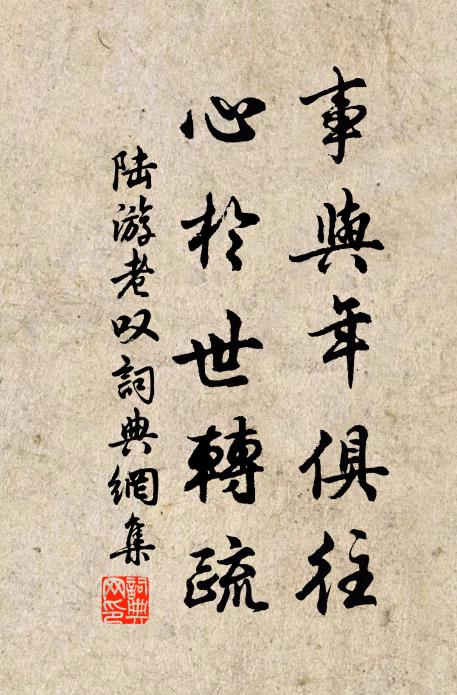 事與年俱往
心於世轉疏
陸游老叹詞典網集
詞典网印